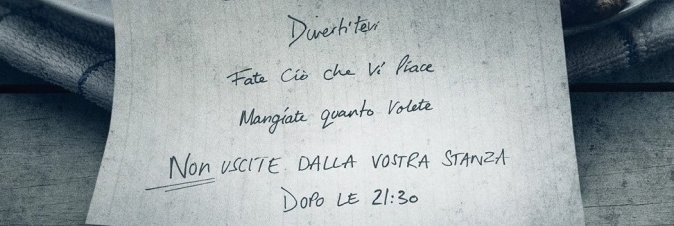 Divertitevi
Fate Ciò che Vi Piace
Mangiate quanto Volete
Non USCITE DALLA VOSTRA STANZA
DOPO LE 21:30